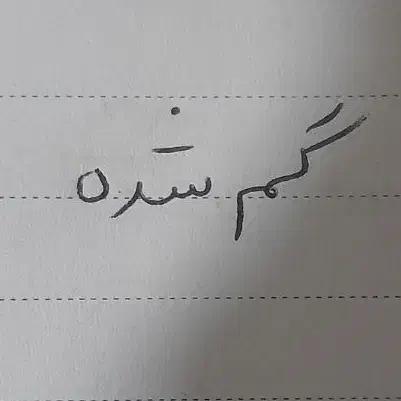 گم شده